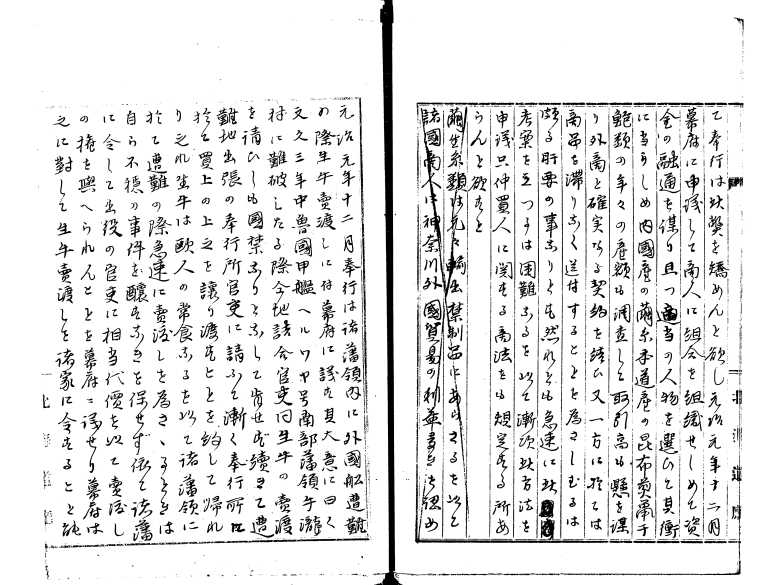 て奉行は此弊を矯めんと欲し元治元年十二月
幕府に申議して商人に組合を組織せしめて資
金の融通を謀り且つ適当の人物を選ひて其衝
に当らしめ内国産の繭糸本道産の昆布煎海鼠干
鮑類の年々の産額も調査して取引高も懸を謀
り外商と確実なる契約を結ひ又一方に於ては
商品を滞りなく送付することを為さしむるは
頗る肝要の事なりとも然れとも急速に此
考案を立つるは困難なるを以て漸次此方法を
申議只仲買人に関する商法をも規定する所あ
らんと欲すと
繭生糸類は元々輸出禁制品にあらさるを以て
諸国商人は神奈川外国貿易の利益
元治元年十二月奉行は諸藩領内に外国船遭難
の際生牛売渡しに付幕府に議す其大意に曰く
文久三年中魯国甲艦ヘルワヤ号南部藩領牛瀧
村に難破したる際今地詰合官吏同生牛の売渡
を請ひしも国禁なりとなして肯せす続きて遭
難地出張の奉行所官吏に請ふて漸く奉行所に
於て買上の上之を譲り渡すことを約して帰れ
り之れ生牛は欧人の常食なるを以て諸藩領に
於て遭難の際急速に売渡しを為さゝるときは
自ら不穏の事件を醸すなきを保せす依て諸藩
に令して出役の官吏に相当代価を以て売渡し
の権を與へられんことを幕府に議せり幕府は
之に対して生牛売渡しを諸家に令することと
北海道庁
北海道庁